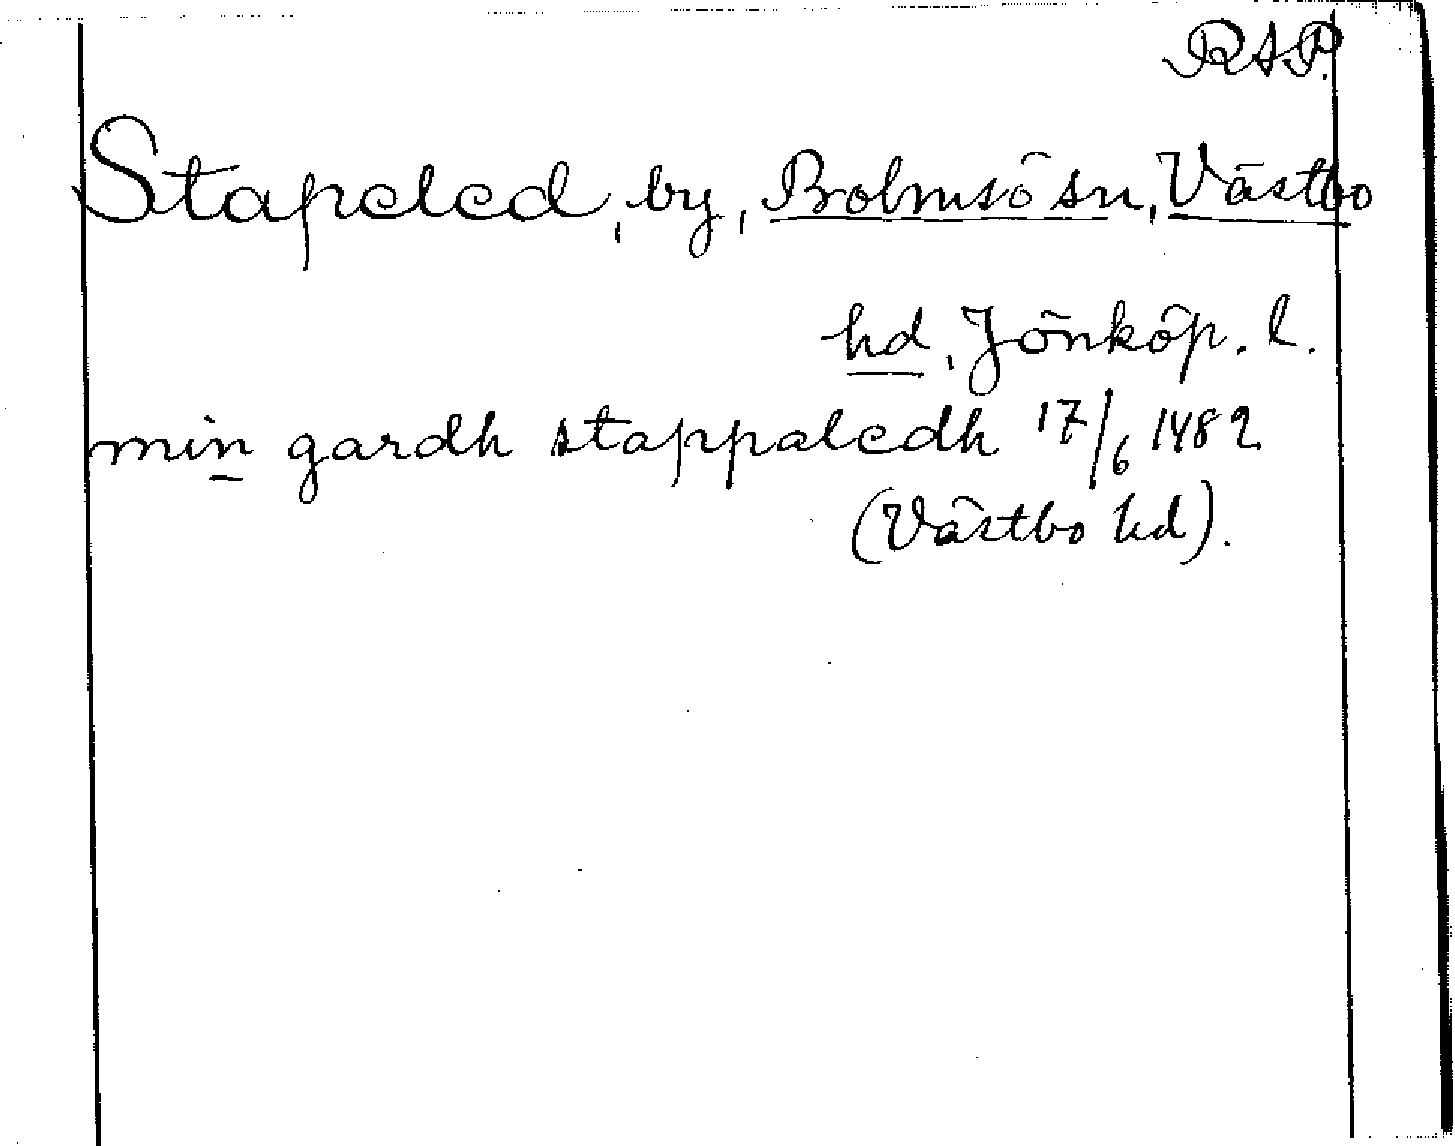 RAP.
Stapeled, by, Bolmsö sn, Västbo
hd, Jönköp. l.
min gardh stappaledh 17/6 1482
(Västbo hd).